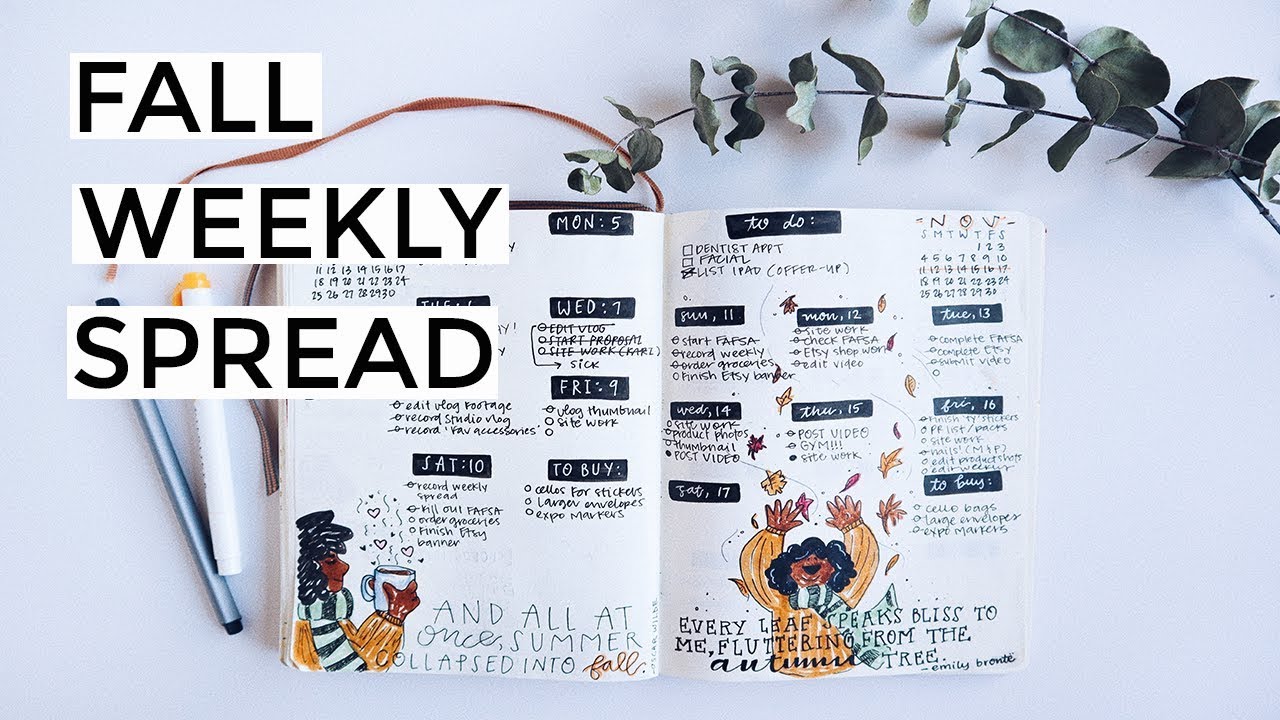 FALL
WEEKLY
SPREAD
MON: 5
11 12 13 14 15 16 17
18 19 20 21 22 23 24
25 26 27 28 29 30
WED: 7
EDIT VLOG
START PROPOSAL
SITE WORK (KARL)
SICK
edit vlog footage
record studio vlog
record 'Fav accessories'
FRI: 9
vlog thumbnail
site work
SAT: 10
record weekly
spread
Fill out FAFSA
order groceries
Finish Etsy
banner
TO BUY:
cellos for stickers
larger envelopes
expo markers
AND ALL AT
once, SUMMER
COLLAPSED INTO fall.
OSCAR WILDE
to do:
DENTIST APPT
FACIAL
LIST IPAD (OFFER-UP)
NOV
S M T W T F S
1 2 3
4 5 6 7 8 9 10
11 12 13 14 15 16 17
18 19 20 21 22 23 24
25 26 27 28 29 30
sun, 11
start FAFSA
record weekly
order groceries
Finish Etsy banner
mon, 12
site work
check FAFSA
Etsy shop work
edit video
tue, 13
complete FAFSA
complete Etsy
submit video
wed, 14
site work
product photos
thumbnail
POST VIDEO
thu, 15
POST VIDEO
GYM!!!
site work
fri, 16
Finish 'ty' stickers
PR list/packs
site work
nails! (M+P)
edit product shots
edit weekly
sat, 17
to buy:
cello bags
large envelopes
expo markers
EVERY LEAF SPEAKS BLISS TO
ME, FLUTTERING FROM THE
autumn TREE.
-emily brontë